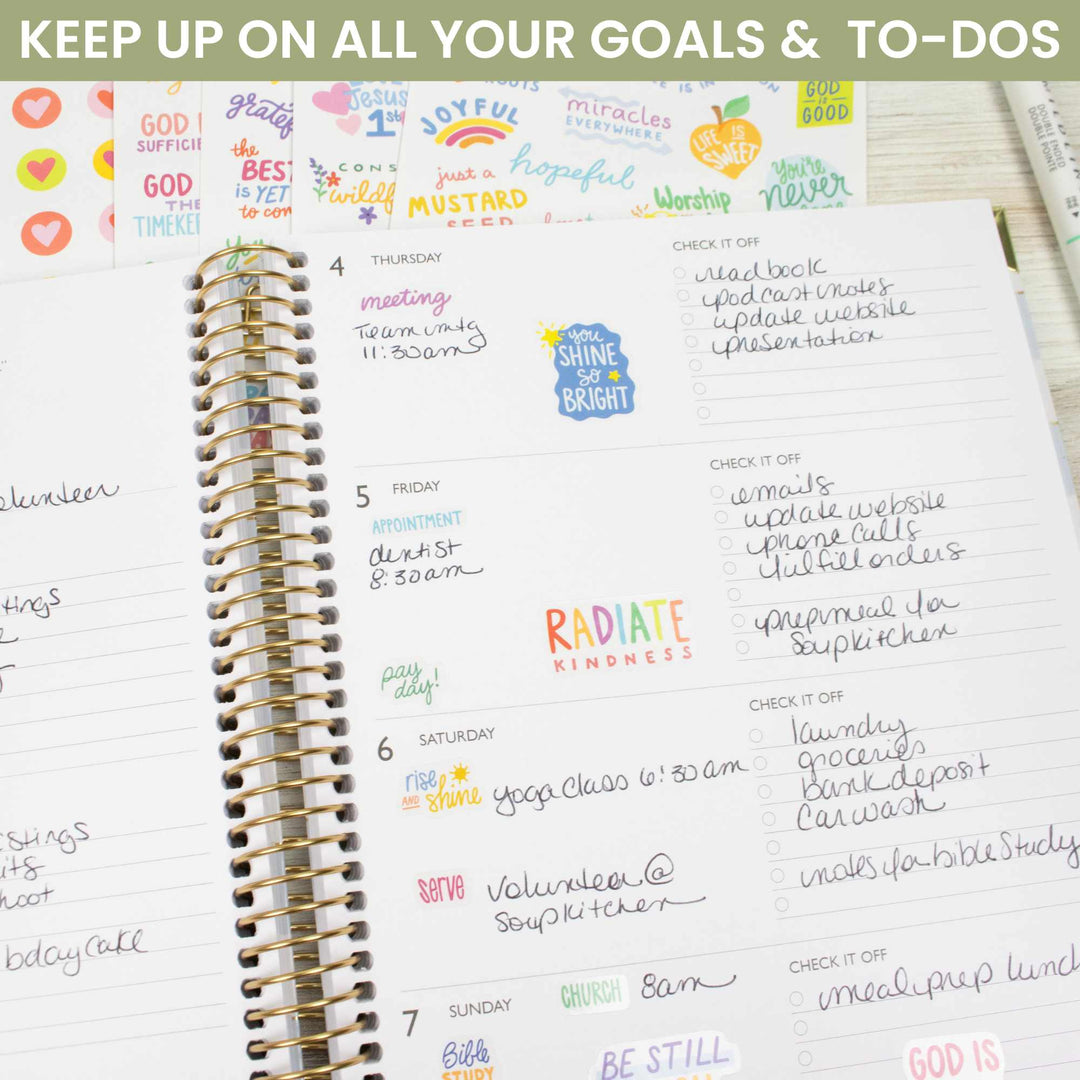 KEEP UP ON ALL YOUR GOALS & TO-DOS
GOD
SUFFICIE
GOD
THE
TIMEKE
grateful
the
BEST
is YET
to com
Jesus
1st
CONS
wildf
JOYFUL
just a
MUSTARD
SEED
miracles
EVERYWHERE
hopeful
LIFE IS
SWEET
Worship
GOD
is
GOOD
You're
never
DOUBLE ENDED
DOUBLE POINTE
4 THURSDAY
meeting
Team mtg
11:30am
you
SHINE
so
BRIGHT
CHECK IT OFF
read book
podcast notes
update website
presentation
5 FRIDAY
APPOINTMENT
dentist
8:30am
RADIATE
KINDNESS
pay
day!
CHECK IT OFF
emails
update website
phone calls
fulfill orders
prep meal for
Soup kitchen
6 SATURDAY
rise
AND shine
yoga class 6:30am
serve
Volunteer @
Soup kitchen
CHECK IT OFF
laundry
groceries
bank deposit
car wash
notes for bible Study
7 SUNDAY
CHURCH 8am
Bible
STUDY
BE STILL
CHECK IT OFF
meal prep lunch
GOD IS
olunteer
stings
hoot
bday cake